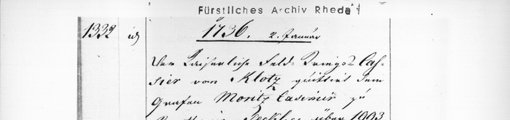 Fürstliches Archiv Rheda
1332 1736. 2. Januar
Der Kaiserliche Feld
von Klotz quittirt dem
Grafen Moritz Casimir zu
über 1003